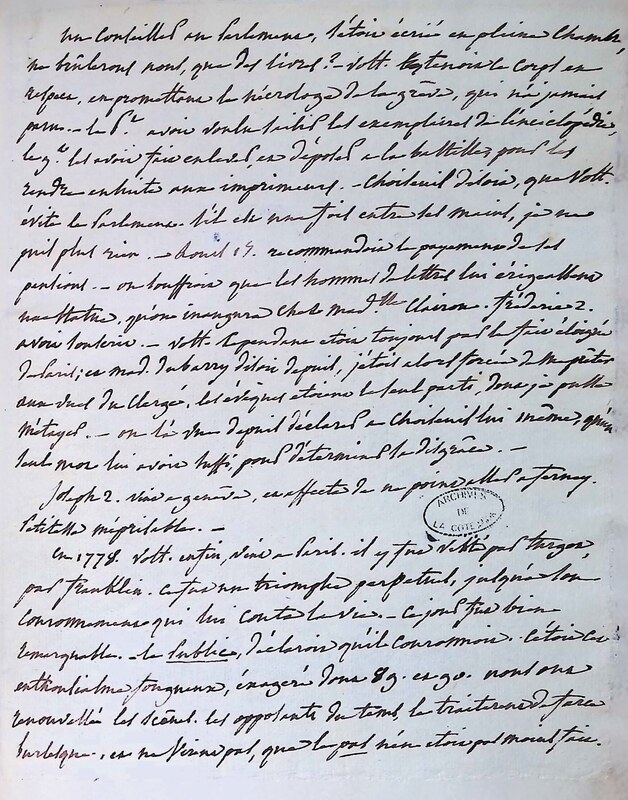 un conseiller au Parlement, s'étoit écrié en pleine chambre,
ne brûlerons nous, que des livres? - Volt. tenoit le corps en
respect, en promettant le nécrologe de la grève, qui n'a jamais
paru. - le P.r avoit voulu saisir les exemplaires de l'enciclopédie,
le g.t les avoit fait enlever, et déposer a la bastille, pour les
rendre ensuite aux imprimeurs. - Choiseuil disoit, que Volt.
évite le Parlement. s'il est une fois entre ses mains, je ne
puis plus rien. - Louis 15. recommandoit le payement de ses
pensions. - on souffroit que les hommes de lettres lui érigeassent
une statue, qu'on inaugura chez mad.lle Clairon. frédéric 2.
avoit souscrit. - Volt. cependant étoit toujours par le fait éloigné
de Paris; et mad. du barry disoit depuis, j'étois alors forcée de me prêter
aux vues du Clergé, les évêques étoient le seul parti, dont je pusse
m'étayer. - on l'a vue depuis déclarer a Choiseuil lui même, qu'un
seul mot lui avoit suffi, pour déterminer sa disgrâce. -
Joseph 2. vint a genève, et affecta de ne point aller a ferney.
Petitesse méprisable. -
ARCHIVES
DE
LA COTE
En 1778. Volt. enfin, vint a Paris. il y fut visité par turgot,
par franklin. ce fut un triomphe perpétuel, jusqu'à son
couronnement qui lui couta la vie. - ce jour fut bien
remarquable. - le Public, déclaroit qu'il couronnoit. c'étoit cet
enthousiasme fougueux, éxagéré dont 89. et 90. nous ont
renouvellé les scènes. les opposants du tems, le traiterent de farce
burlesque, et ne virent pas, que le pas n'en étoit pas moins fait.